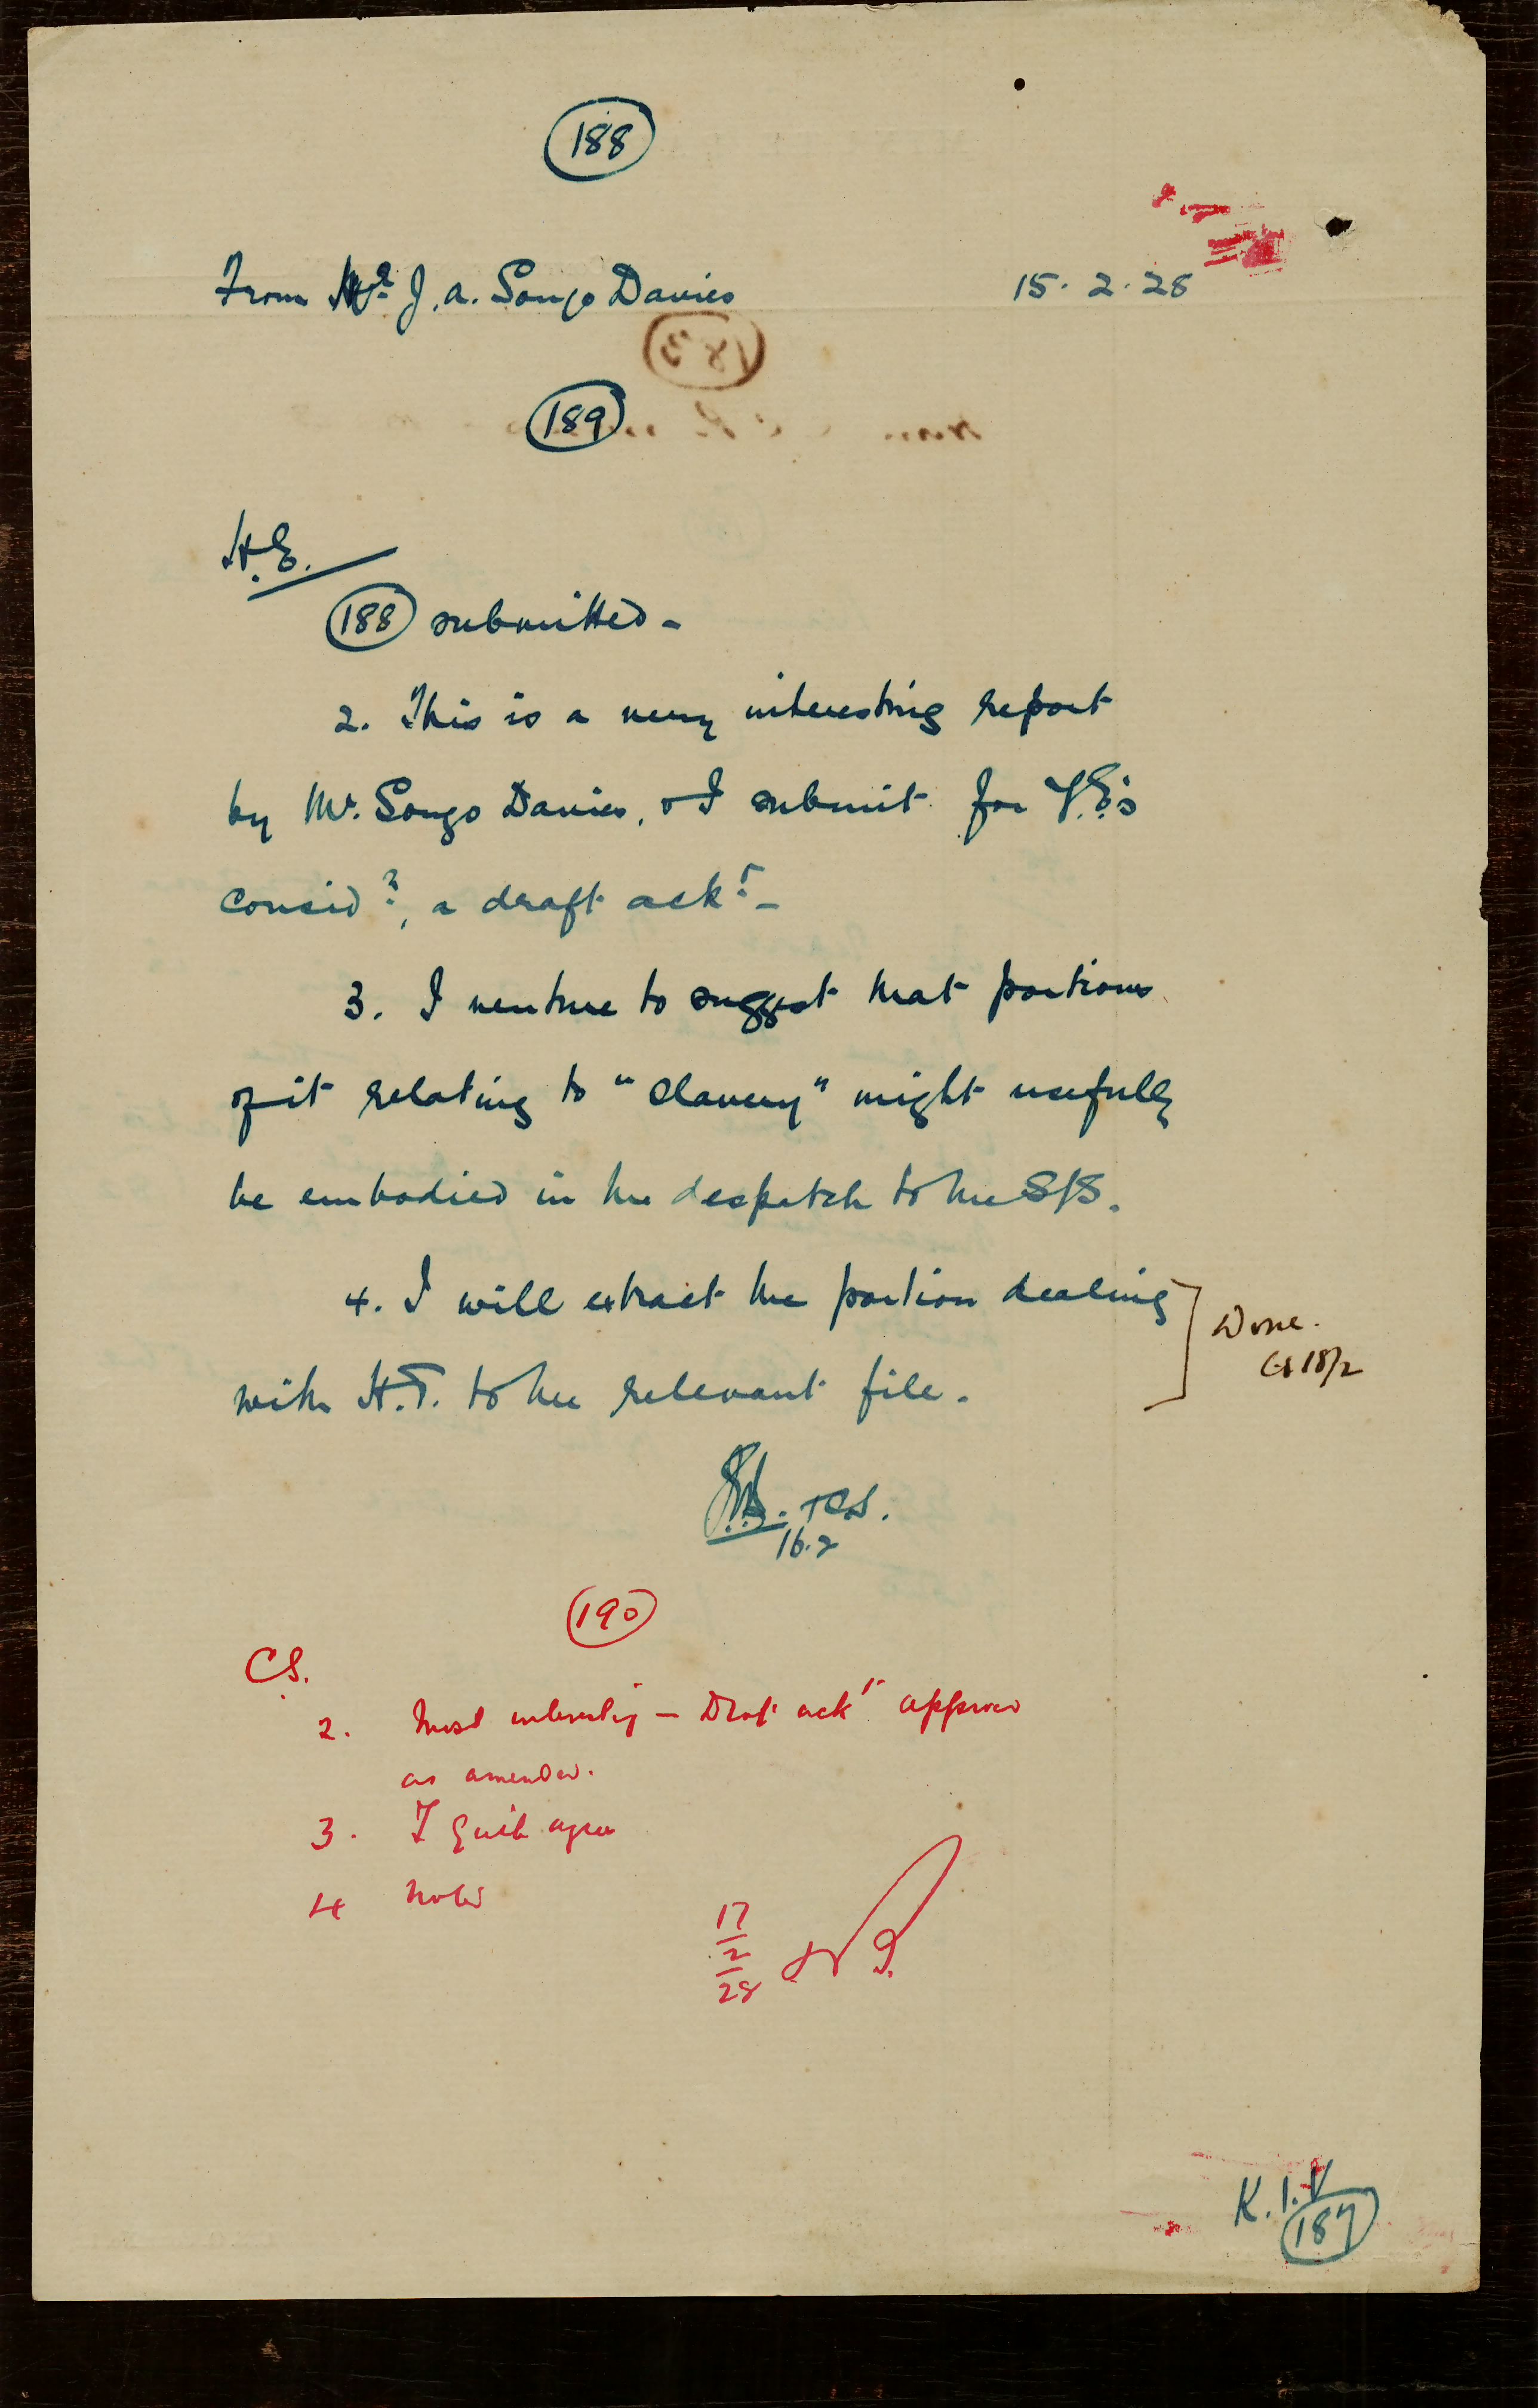 188
From Mr. J. A. Songo Davies 15.2.28
189
H.E.
188 submitted -
2. This is a very interesting report
by Mr. Songo Davies, & I submit for Y.E.'s
considn, a draft ackt. -
3. I venture to suggest that portions
of it relating to "slavery" might usefully
be embodied in the despatch to the S/S.
4. I will extract the portion dealing
with H.T. to the relevant file.
Done.
18/2
16.2
190
C.S.
2. Most interesting - Draft ackt approved
as amended.
3. I quite agree
4 Noted
17/2/28
K.I.V
187